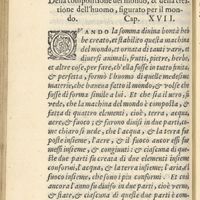 Della compositione del mondo, & della crea
tione dell'huomo, figurato per il mon-
do. Cap. XVII.
QVANDO la somma diuina bontà heb
be creato, et stabilito questa machina
del mondo, et ornata di tanti vari, et
diuersi animali, frutti, pietre, herbe,
et altre cose, per fare, ch'ella fosse in tutto finita,
& perfetta, formò l'huomo di quelle medesime
materie, che hauea fatto il mondo, & volse che
fosse di suo simile. Et che il sia
vede, che la machina del mondo è composta, &
diuisa in due parti, cioè cielo, & terra, acqua,
aere, & fuoco; & furono diuisi in due parti,
ne chiaro si vede, che l'acqua, & la terra fu
poste insieme, l'aere, & il fuoco ancor essi fur
messi insieme, & congiunti; & ciascuna di que
ste due parti fu creata di due elementi insieme
conformi: l'acqua, & la terra insieme; l'aria; & il
fuoco insieme, che sono i piu conformi. Et cosi
ancora l'anno fu diuiso in due parti, cioè verno,
& state, & ciascuna di queste due parti è com